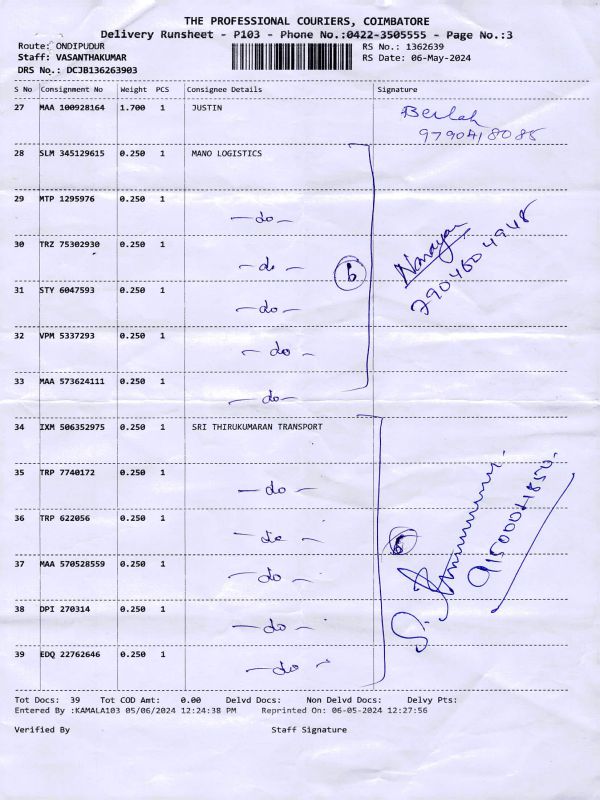 THE PROFESSIONAL COURIERS, COIMBATORE
Delivery Runsheet - P103 - Phone No.:0422-3505555 - Page No.:3
Route: ONDIPUDUR RS No.: 1362639
Staff: VASANTHAKUMAR RS Date: 06-May-2024
DRS No.: DCJB136263903
S No Consignment No Weight PCS Consignee Details Signature
27 MAA 100928164 1.700 1 JUSTIN
9790418085
28 SLM 345129615 0.250 1 MANO LOGISTICS
29 MTP 1295976 0.250 1 - do -
30 TRZ 75302930 0.250 1 - do - 6 Narayan
31 STY 6047593 0.250 1 - do - 7904604948
32 VPM 5337293 0.250 1 - do -
33 MAA 573624111 0.250 1 - do -
34 IXM 506352975 0.250 1 SRI THIRUKUMARAN TRANSPORT
35 TRP 7740172 0.250 1 - do -
36 TRP 622056 0.250 1 - do - 6
37 MAA 570528559 0.250 1 - do -
38 DPI 270314 0.250 1 - do -
39 EDQ 22762646 0.250 1 - do -
Tot Docs: 39 Tot COD Amt: 0.00 Delvd Docs: Non Delvd Docs: Delvy Pts:
Entered By :KAMALA103 05/06/2024 12:24:38 PM Reprinted On: 06-05-2024 12:27:56
Verified By Staff Signature